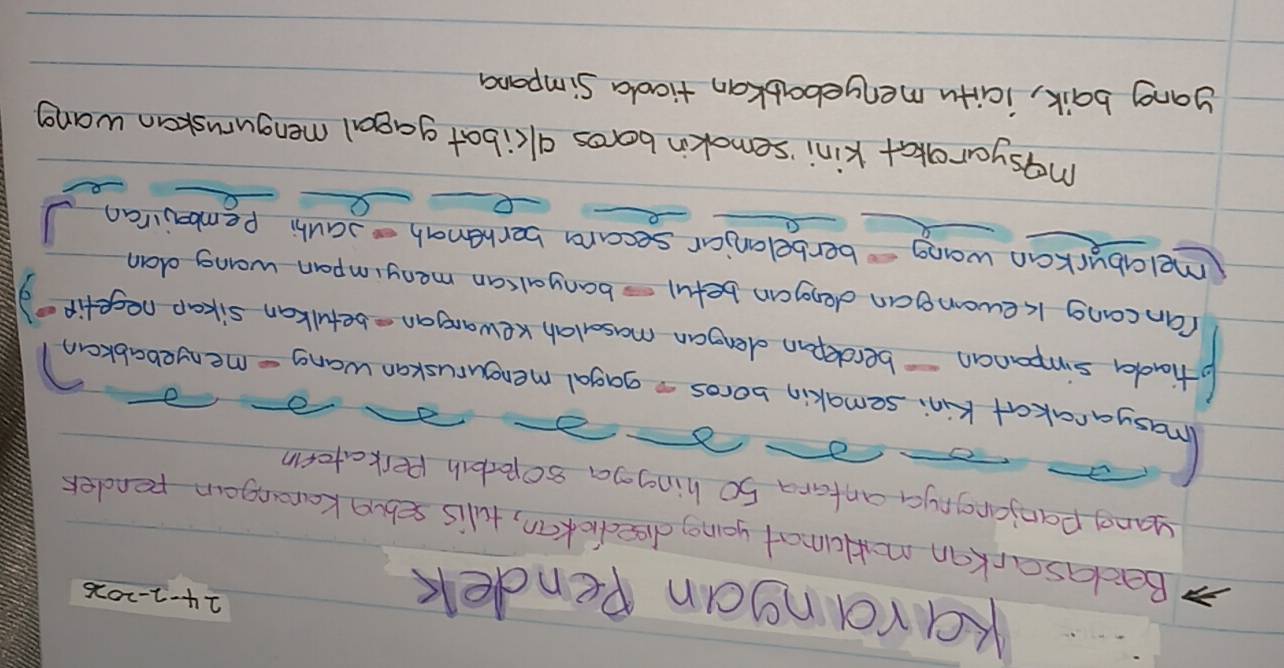 24-2-2026
Karangan Pendek
Berdasarkan maklumat yang disediakan, tulis sebua karangan pendek
yang panjangnya antara 50 hingga 80 patah perkataan
masyarakat kini semakin boros → gagal menguruskan wang → menyebabkan
tiada simpanan → berdepan dengan masalah kewangan → betulkan sikap negetif →
rancang kewangan dengan betul → banyakkan menyimpan wang dan
melaburkan wang → berbelanjar secara berhemah → jauhi pembaziran
masyarakat kini semakin boros akibat gagal menguruskan wang
yang baik, iaitu menyebabkan tiada simpana